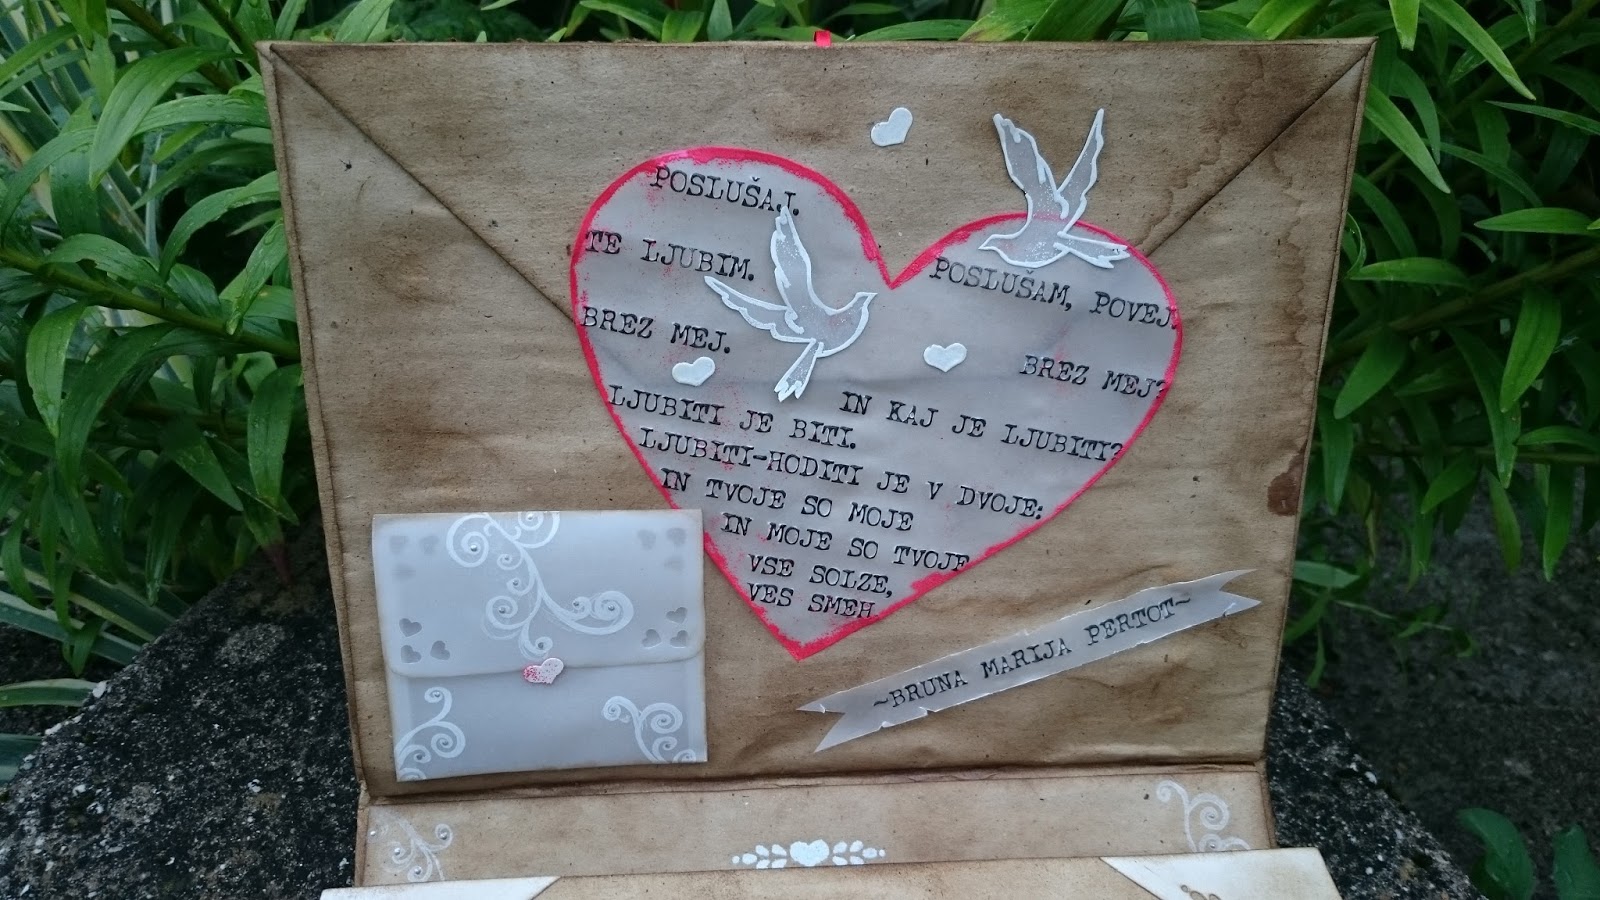 POSLUŠAJ.
TE LJUBIM.
POSLUŠAM, POVEJ.
BREZ MEJ.
BREZ MEJ?
IN KAJ JE LJUBITI?
LJUBITI JE BITI.
LJUBITI-HODITI JE V DVOJE:
IN TVOJE SO MOJE
IN MOJE SO TVOJE
VSE SOLZE,
VES SMEH
~BRUNA MARIJA PERTOT~